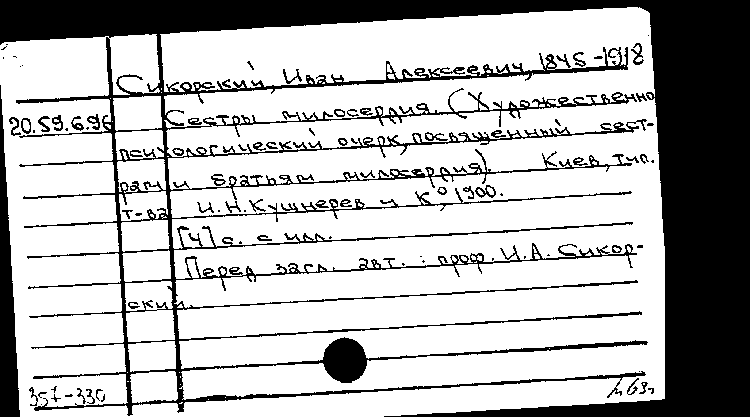 Сикорский, Иван Алексеевич, 1845-1918
20.59.6.96 Сестры милосердия. (Художественно
психологический очерк, посвященный сест-
рам и братьям милосердия). Киев, тип.
т-ва И.Н.Кушнерев и К°, 1900.
[4] с. с илл.
Перед загл. авт.: проф. И.А. Сикор-
ский.
357-330